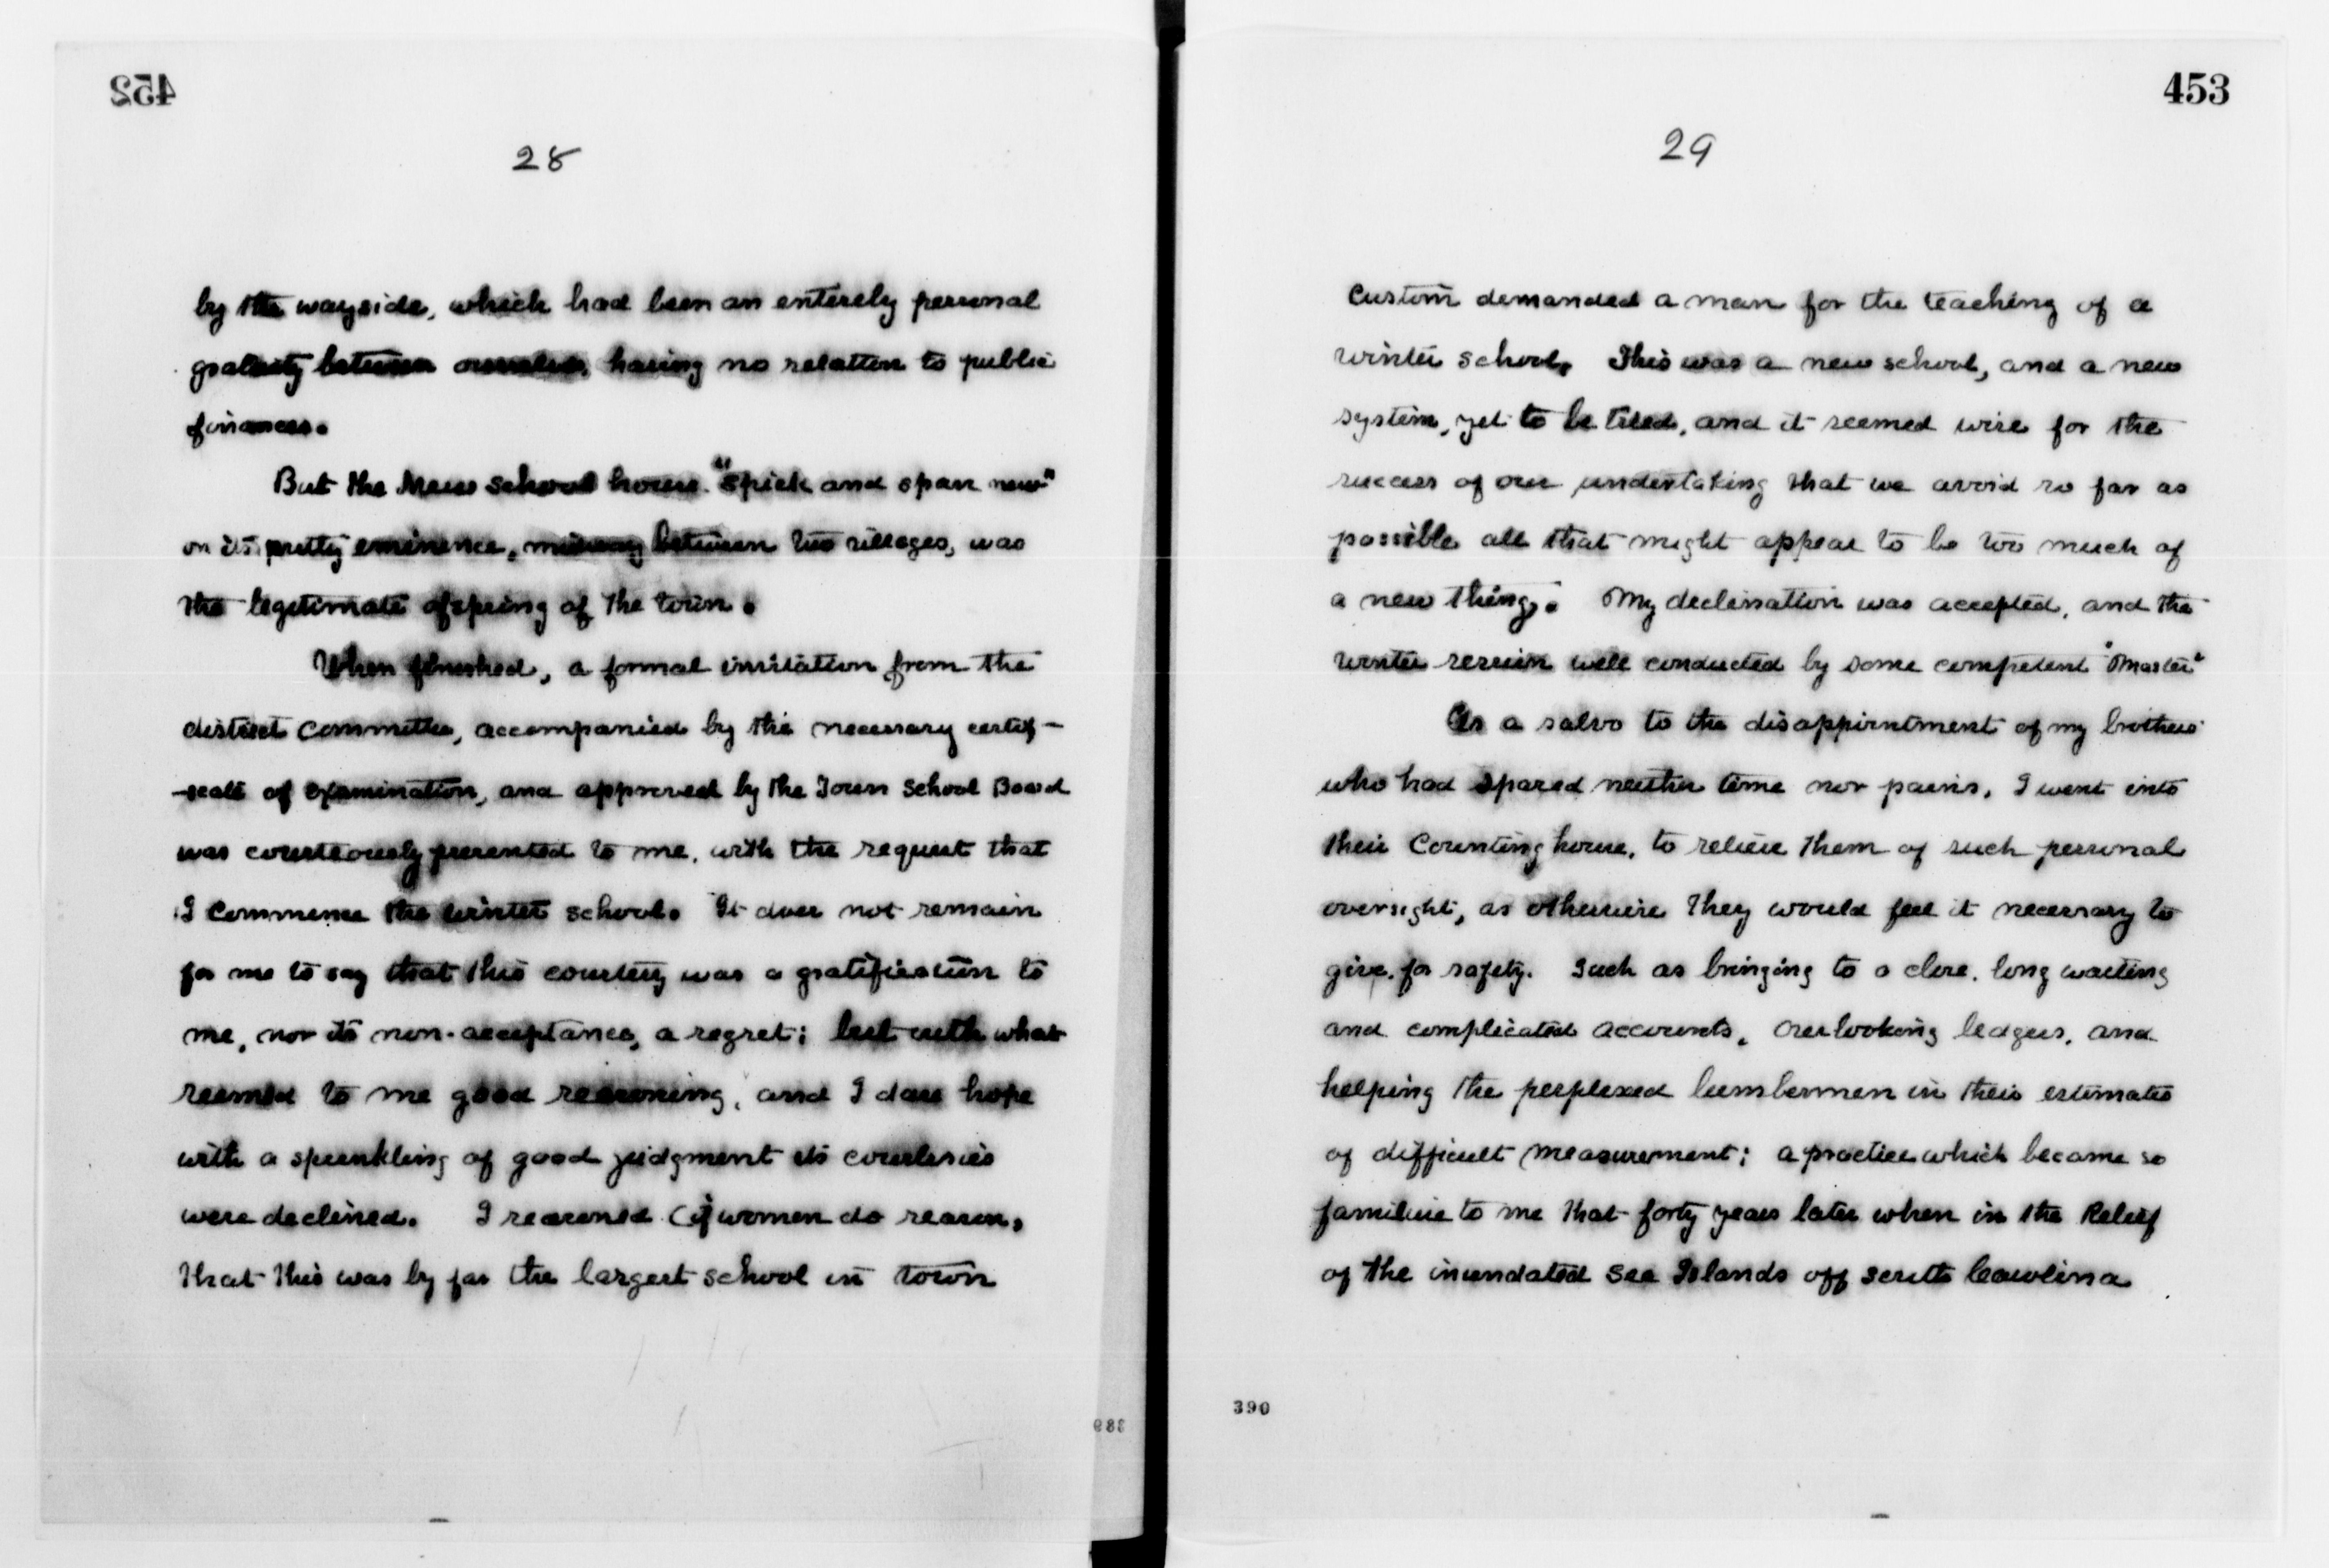 452
28
by the wayside, which had been an entirely personal
gratuity between ourselves, having no relation to public
finances.
But the new school house. "Spick and span new"
on its pretty eminence, midway between two villages, was
the legitimate ofspring of the town.
When finished, a formal invitation from the
district committee, accompanied by the necessary certif-
-icate of examination, and approved by the Town School Board
was courteously presented to me, with the request that
I commence the winter school. It does not remain
for me to say that this courtesy was a gratification to
me, nor its non-acceptance, a regret; but with what
seemed to me good reasoning, and I dare hope
with a sprinkling of good judgment its courtesies
were declined. I reasoned (if women do reason,
that this was by far the largest school in town
453
29
custom demanded a man for the teaching of a
winter school. This was a new school, and a new
system, yet to be tried, and it seemed wise for the
success of our undertaking that we avoid so far as
possible all that might appear to be too much of
a new thing. My declination was accepted, and the
winter session well conducted by some competent "Master"
As a salvo to the disappointment of my brothers
who had spared neither time nor pains, I went into
their Counting house, to relieve them of such personal
oversight, as otherwise they would feel it necessary to
give, for safety. Such as bringing to a close, long waiting
and complicated accounts, overlooking ledgers, and
helping the perplexed lumbermen in their estimates
of difficult measurement; a practice which became so
familiar to me that forty years later when in the Relief
of the inundated Sea Islands off South Carolina
389
390